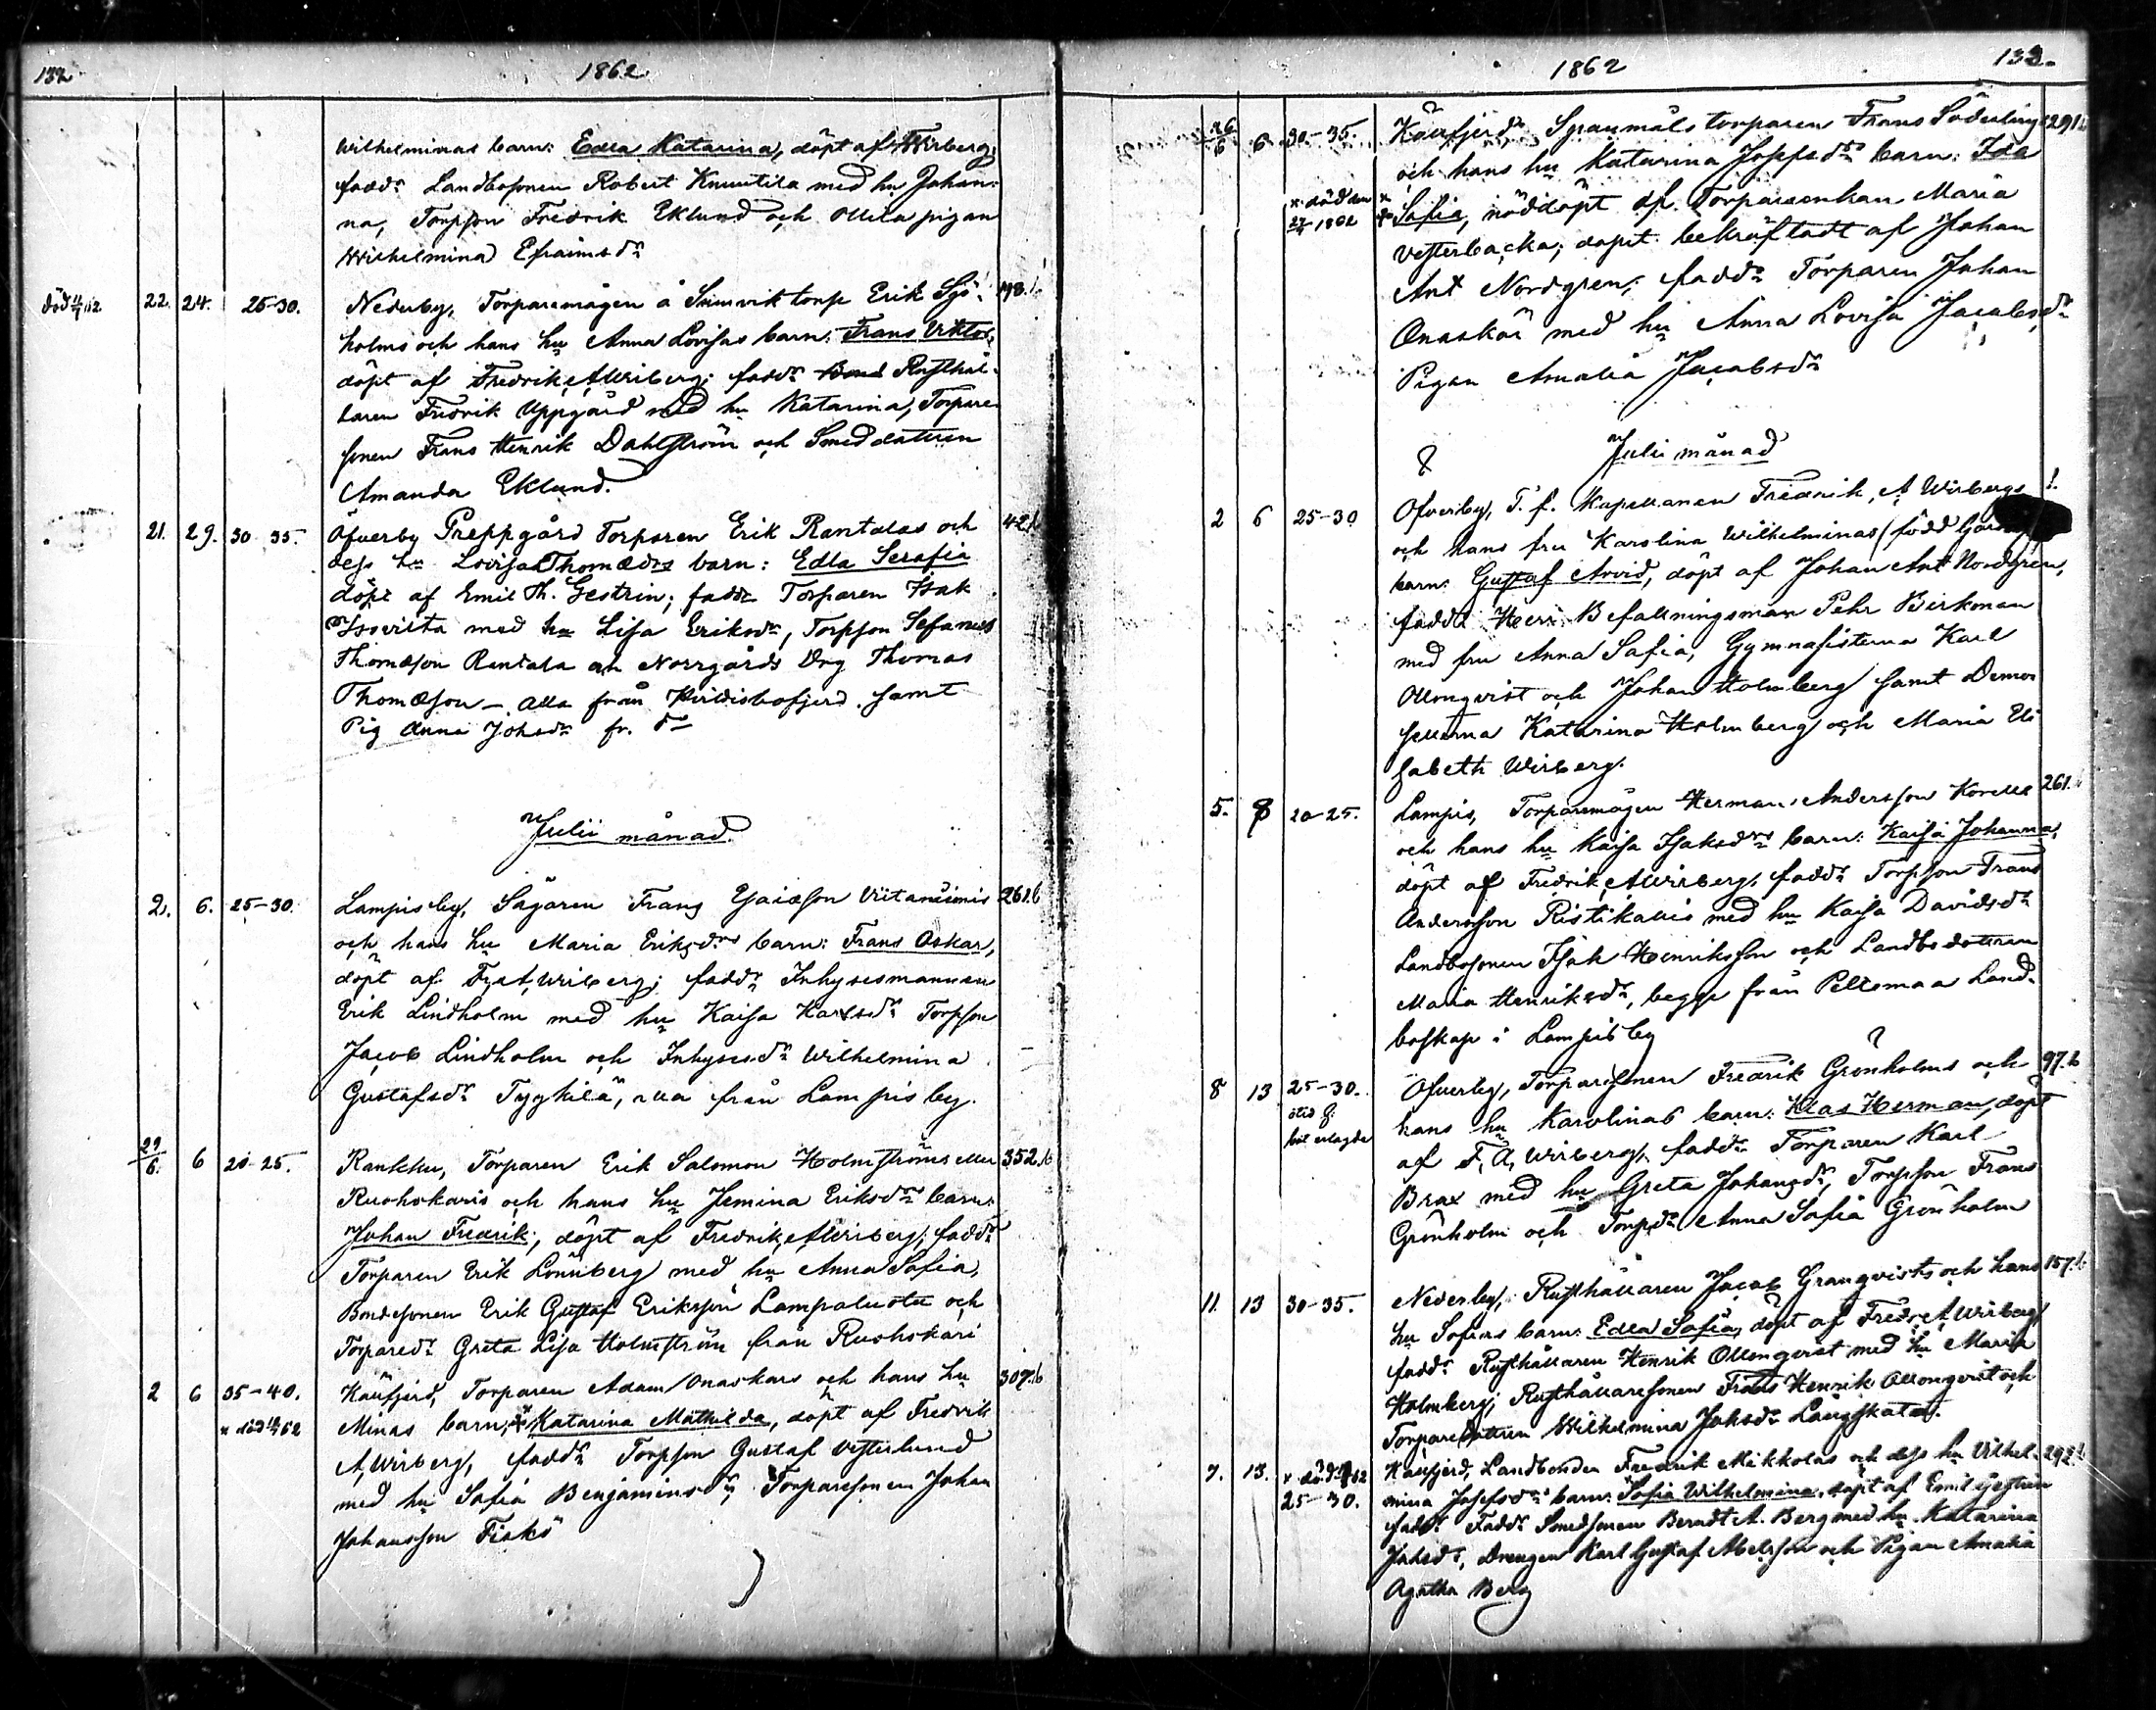 132
1862
Wilhelminas barn: Edla Katarina, döpt af Wirberg;
fadd: Landbosonen Robert Knuutila med hu Johan-
na, Torpson Fredrik Eklund och pigan
Wilhelmina Efraimsdr
död 62
22. 24. 25-30.
Nederby, Torparemågen å torp Erik Sjö-
198.
holms och hans hu Anna Lovisas barn: Frans Viktor,
döpt af Fredrik A Wirberg; fadd: Rusthål-
laren Fredrik Uppgård med hu Katarina, Torpare
sonen Frans Henrik Dahlström och Smeddottren
Amanda Eklund.
21. 29. 30-35.
Öfverby Preppgård Torparen Erik Rantalas och
42.
dess hu Lovisa Thomædrs barn: Edla Serafia
döpt af Emil Th. Gestrin; fadd: Torparen Isak
med hu Lisa Eriksdr, Torpson Sefanias
Thomæson Rantala och Norrgårds Drg Thomas
Thomæson – alla från samt
Pig Anna Johsdr fr. do
Julii månad.
2. 6. 25-30.
Lampis by, Sågaren Frans Viitaniemis
261.b
och hans hu Maria Eriksdrs barn: Frans Oskar,
döpt af Fr. A. Wirberg; fadd: Inhysesmannen
Erik Lindholm med hu Kaisa Karlsdr Torpson
Jacob Lindholm och Inhysesdr Wilhelmina
Gustafsdr Tyykilä, alla från Lampis by.
29/6. 6 20-25.
Rankku, Torparen Erik Salomon Holmströms eller
352.b
Ruohokaris och hans hu Jemina Eriksdrs barn:
Johan Fredrik, döpt af Fredrik A Wirberg; fadd:
Torparen Erik Lönnberg med hu Anna Sofia,
Bondesonen Erik Gustaf Eriksson Lampaluoto och
Torparedr Greta Lisa Holmström från Ruohokari
2 6 35-40.
Käufjerd, Torparen Adam Onaskars och hans hu
307.b
x död 62
Minas barn, x Katarina Mathilda, döpt af Fredrik
A, Wirberg, fadd: Torpson Gustaf Vesterlund
med hu Sofia Benjaminsdr, Torparesonen Johan
Johansson Fiskö
1862
133.
26/6 6 30-35.
Käufjerd, Torparen Frans Söderlings
291.
och hans hu Katarina Josefsdrs barn: Ida
x död den 1862
x Sofia, nöddöpt af Torpareenkan Maria
Vesterbacka; dopet bekräftadt af Johan
Ant Nordgren; fadd: Torparen Johan
Onaskär med hu Anna Lovisa Jacobsdr
Pigan Amalia Jacobsdr
Julii månad
2 6 25-30
Öfverby, T. f. Kapellanen Fredrik A Wirbergs
och hans fru Karolina Wilhelminas (född
barn: Gustaf Arvid, döpt af Johan Ant Nordgren,
fadd: Herr Befallningsman Pehr Birkman
med fru Anna Sofia, Gymnasisterna Karl
Ollonqvist och Johan Holmberg samt Demoi
sellerna Katarina Holmberg och Maria Eli
sabeth Wirberg.
5. 8 20-25.
Lampis, Torparemågen Herman Andersson Korelle
261.
och hans hu Kaisa Isaksdrs barn: Kaisa Johanna,
döpt af Fredrik A Wirberg, fadd: Torpson Frans
Andersson Ristikallio med hu Kaisa Davidsdr
Landbosonen Isak Henriksson och Landbodottren
Maria Henriksdr, begge från Peltomaa Land-
boskap i Lampis by
8 13 25-30.
Öfverby, Torparesonen Fredrik Grönholms och
97.b
hans hu Karolinas barn: Klas Herman, döpt
af F, A, Wirberg, fadd: Torparen Karl
Brax med hu Greta Johansdr, Torpson Frans
Grönholm och Torpdr Anna Sofia Grönholm
11. 13 30-35.
Nederby, Rusthållaren Jacob Granqvists och hans
157.b
hu Sofias barn: Edla Sofia, döpt af Fredr. A, Wirberg
fadd: Rusthållaren Henrik Ollonqvist med hu Maria
Holmberg; Rusthållaresonen Frans Henrik Ollonqvist och
Torparedottren Wilhelmina Johsdr Långskata.
7. 13. x död 62
25-30.
Käufjerd, Landbonden Fredrik Mikkolas och dess hu Vilhel-
292.
mina Josefsdrs barn: Sofia Wilhelmina, döpt af Emil Gestrin
Fadd: Smedsonen Berndt A. Berg med hu Katarina
Johsdr, Drengen Karl Gustaf Abelsson och Pigan Amalia
Agatha Berg